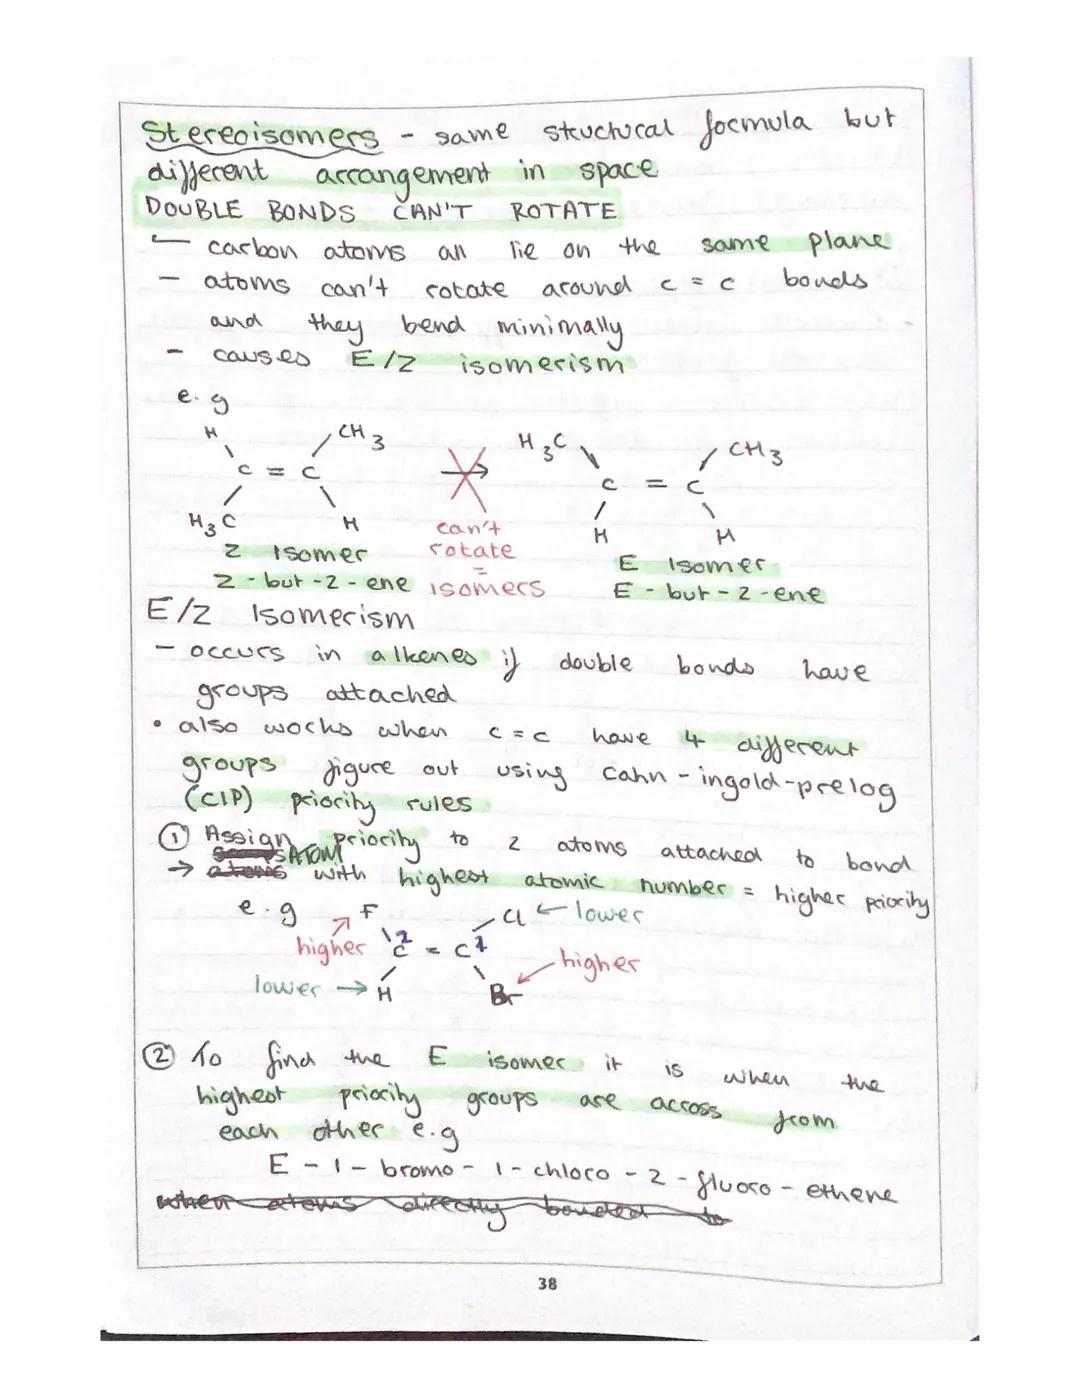 Stereoisomers - same structural formula but
different arrangement in space
DOUBLE BONDS CAN'T ROTATE
- carbon atoms all lie on the same plane
- atoms can't rotate around c = c bonds
and they bend minimally
- causes E/Z isomerism
e.g
H CH3 H3C CH3
C = C C = C
H3C H H H
can't
Z Isomer rotate E Isomer
=
Z - but - 2 - ene isomers E - but - 2 - ene
E/Z Isomerism
- occurs in alkenes if double bonds have
groups attached
• also works when c = c have 4 different
groups figure out using cahn - ingold - prelog
(CIP) priority rules
① Assign priority to 2 atoms attached to bond
ATOM
→ atoms with highest atomic number = higher priority
e.g F Cl ← lower
higher 2 C = C 1 higher
lower → H Br
② To find the E isomer it is when the
highest priority groups are across from
each other e.g
E - 1 - bromo - 1 - chloro - 2 - fluoro - ethene
when atoms directly bonded to
38